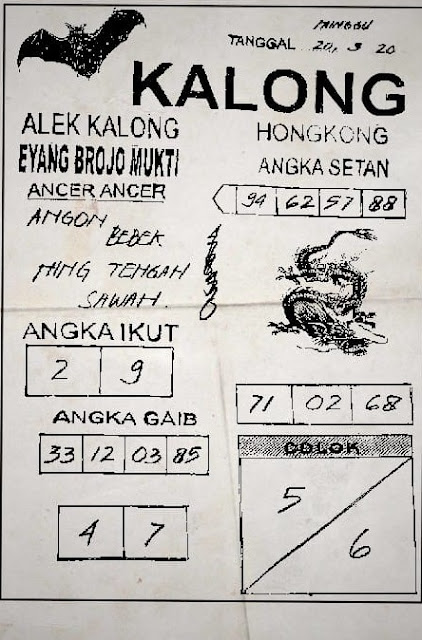 MINGGU
TANGGAL 20, 9 20
KALONG
ALEK KALONG
EYANG BROJO MUKTI
ANCER ANCER
ANGON
BEBEK
NING TENGAH
SAWAH.
ANGKA IKUT
2 9
ANGKA GAIB
33 12 03 85
4 7
HONGKONG
ANGKA SETAN
94 62 57 88
71 02 68
COLOK
5
6